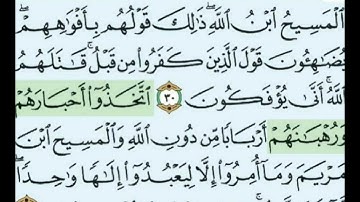 ٱلْمَسِيحُ ٱبْنُ ٱللَّهِ ۖ ذَٰلِكَ قَوْلُهُم بِأَفْوَٰهِهِمْ ۖ
يُضَٰهِـُٔونَ قَوْلَ ٱلَّذِينَ كَفَرُوا۟ مِن قَبْلُ ۚ قَٰتَلَهُمُ
ٱللَّهُ ۚ أَنَّىٰ يُؤْفَكُونَ ٣٠ ٱتَّخَذُوٓا۟ أَحْبَارَهُمْ
وَرُهْبَٰنَهُمْ أَرْبَابًا مِّن دُونِ ٱللَّهِ وَٱلْمَسِيحَ ٱبْنَ
مَرْيَمَ وَمَآ أُمِرُوٓا۟ إِلَّا لِيَعْبُدُوٓا۟ إِلَٰهًا وَٰحِدًا ۖ